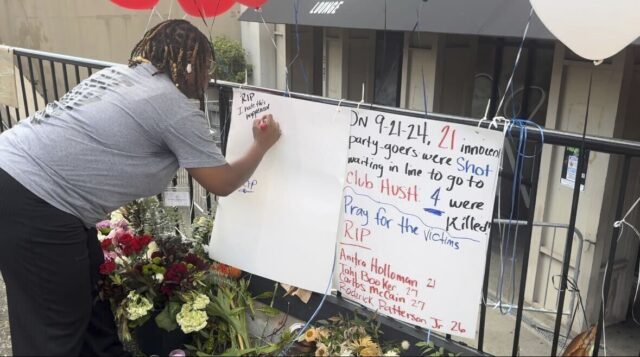 LOUNGE
RIP
I hate this
happened
RIP
On 9-21-24, 21 innocent
party-goers were Shot
waiting in line to go to
Club Hush. 4 were
Killed!
Pray for the victims
RIP
Anitra Holloman 21
Tahj Booker 27
Carlos McCain 27
Roderick Patterson Jr. 26